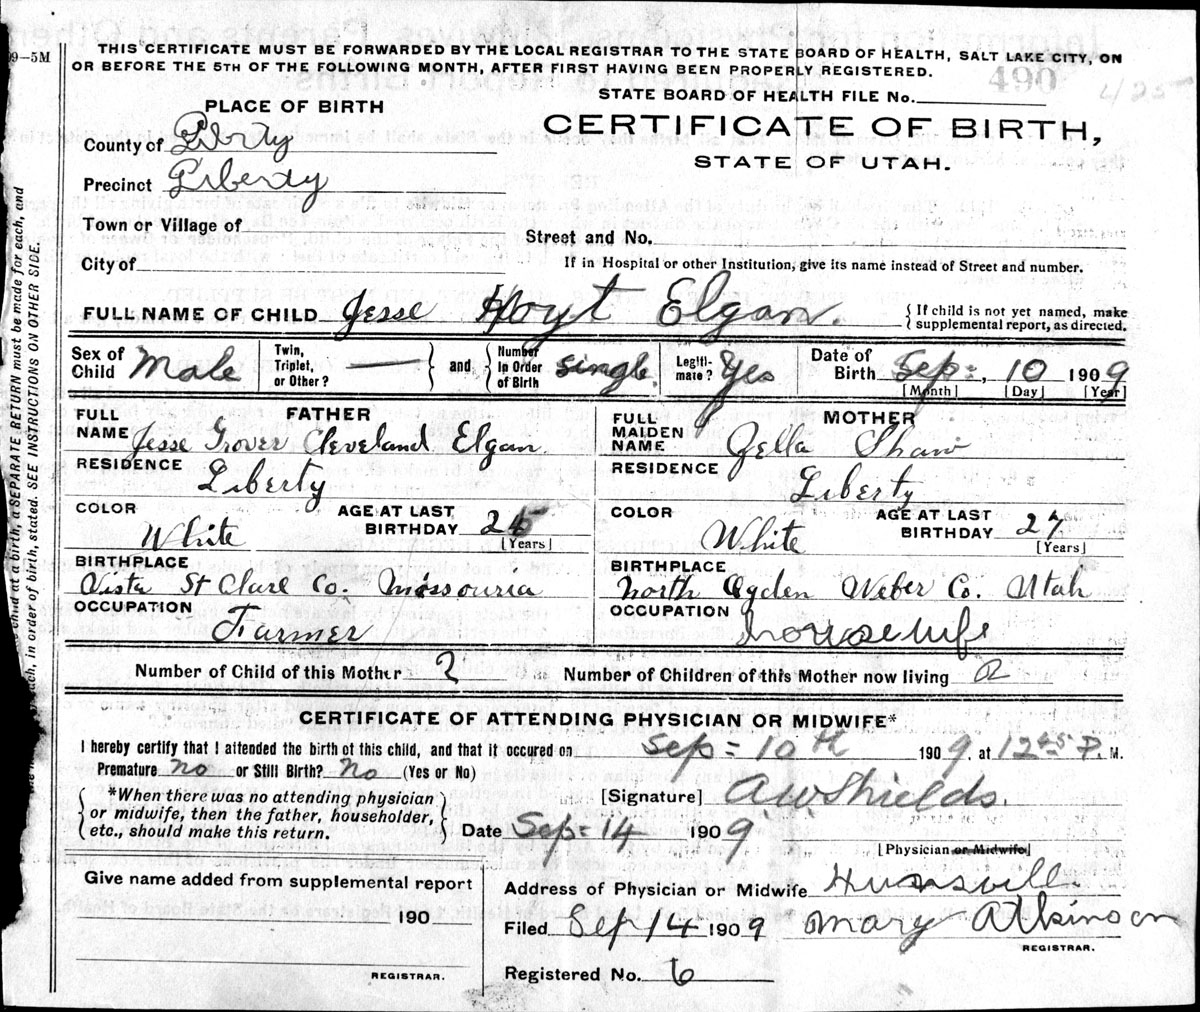 09-5M
THIS CERTIFICATE MUST BE FORWARDED BY THE LOCAL REGISTRAR TO THE STATE BOARD OF HEALTH, SALT LAKE CITY, ON
OR BEFORE THE 5TH OF THE FOLLOWING MONTH, AFTER FIRST HAVING BEEN PROPERLY REGISTERED.
490
PLACE OF BIRTH
STATE BOARD OF HEALTH FILE No.
County of Librty
CERTIFICATE OF BIRTH,
STATE OF UTAH.
Precinct Liberty
Town or Village of
Street and No.
City of
If in Hospital or other Institution, give its name instead of Street and number.
FULL NAME OF CHILD Jesse Hoyt Elgan. {If child is not yet named, make supplemental report, as directed.
Sex of Child Male Twin, Triplet, or Other? — and Number In Order of Birth single Legiti-mate? Yes Date of Birth Sep=, 10 1909
[Month] [Day] [Year]
FATHER
FULL NAME Jesse Grover Cleveland Elgan
MOTHER
FULL MAIDEN NAME Zella Shaw
RESIDENCE Liberty
RESIDENCE Liberty
COLOR White AGE AT LAST BIRTHDAY 25 [Years]
COLOR White AGE AT LAST BIRTHDAY 27 [Years]
BIRTHPLACE Vista St Clare Co. Missouria
BIRTHPLACE North Ogden Weber Co. Utah
OCCUPATION Farmer
OCCUPATION housewife
Number of Child of this Mother 2
Number of Children of this Mother now living 2
CERTIFICATE OF ATTENDING PHYSICIAN OR MIDWIFE*
I hereby certify that I attended the birth of this child, and that it occured on Sep= 10th 1909, at 12 45 P. M.
Premature no or Still Birth? No (Yes or No)
*When there was no attending physician or midwife, then the father, householder, etc., should make this return.
[Signature] A W Shields.
Date Sep= 14 1909
[Physician or Midwife]
Give name added from supplemental report
190
REGISTRAR.
Address of Physician or Midwife Hunsvill
Filed Sep 14 1909 Mary Atkinson
REGISTRAR.
Registered No. 6
child at a birth, a SEPARATE RETURN must be made for each, and
each, in order of birth, stated. SEE INSTRUCTIONS ON OTHER SIDE.